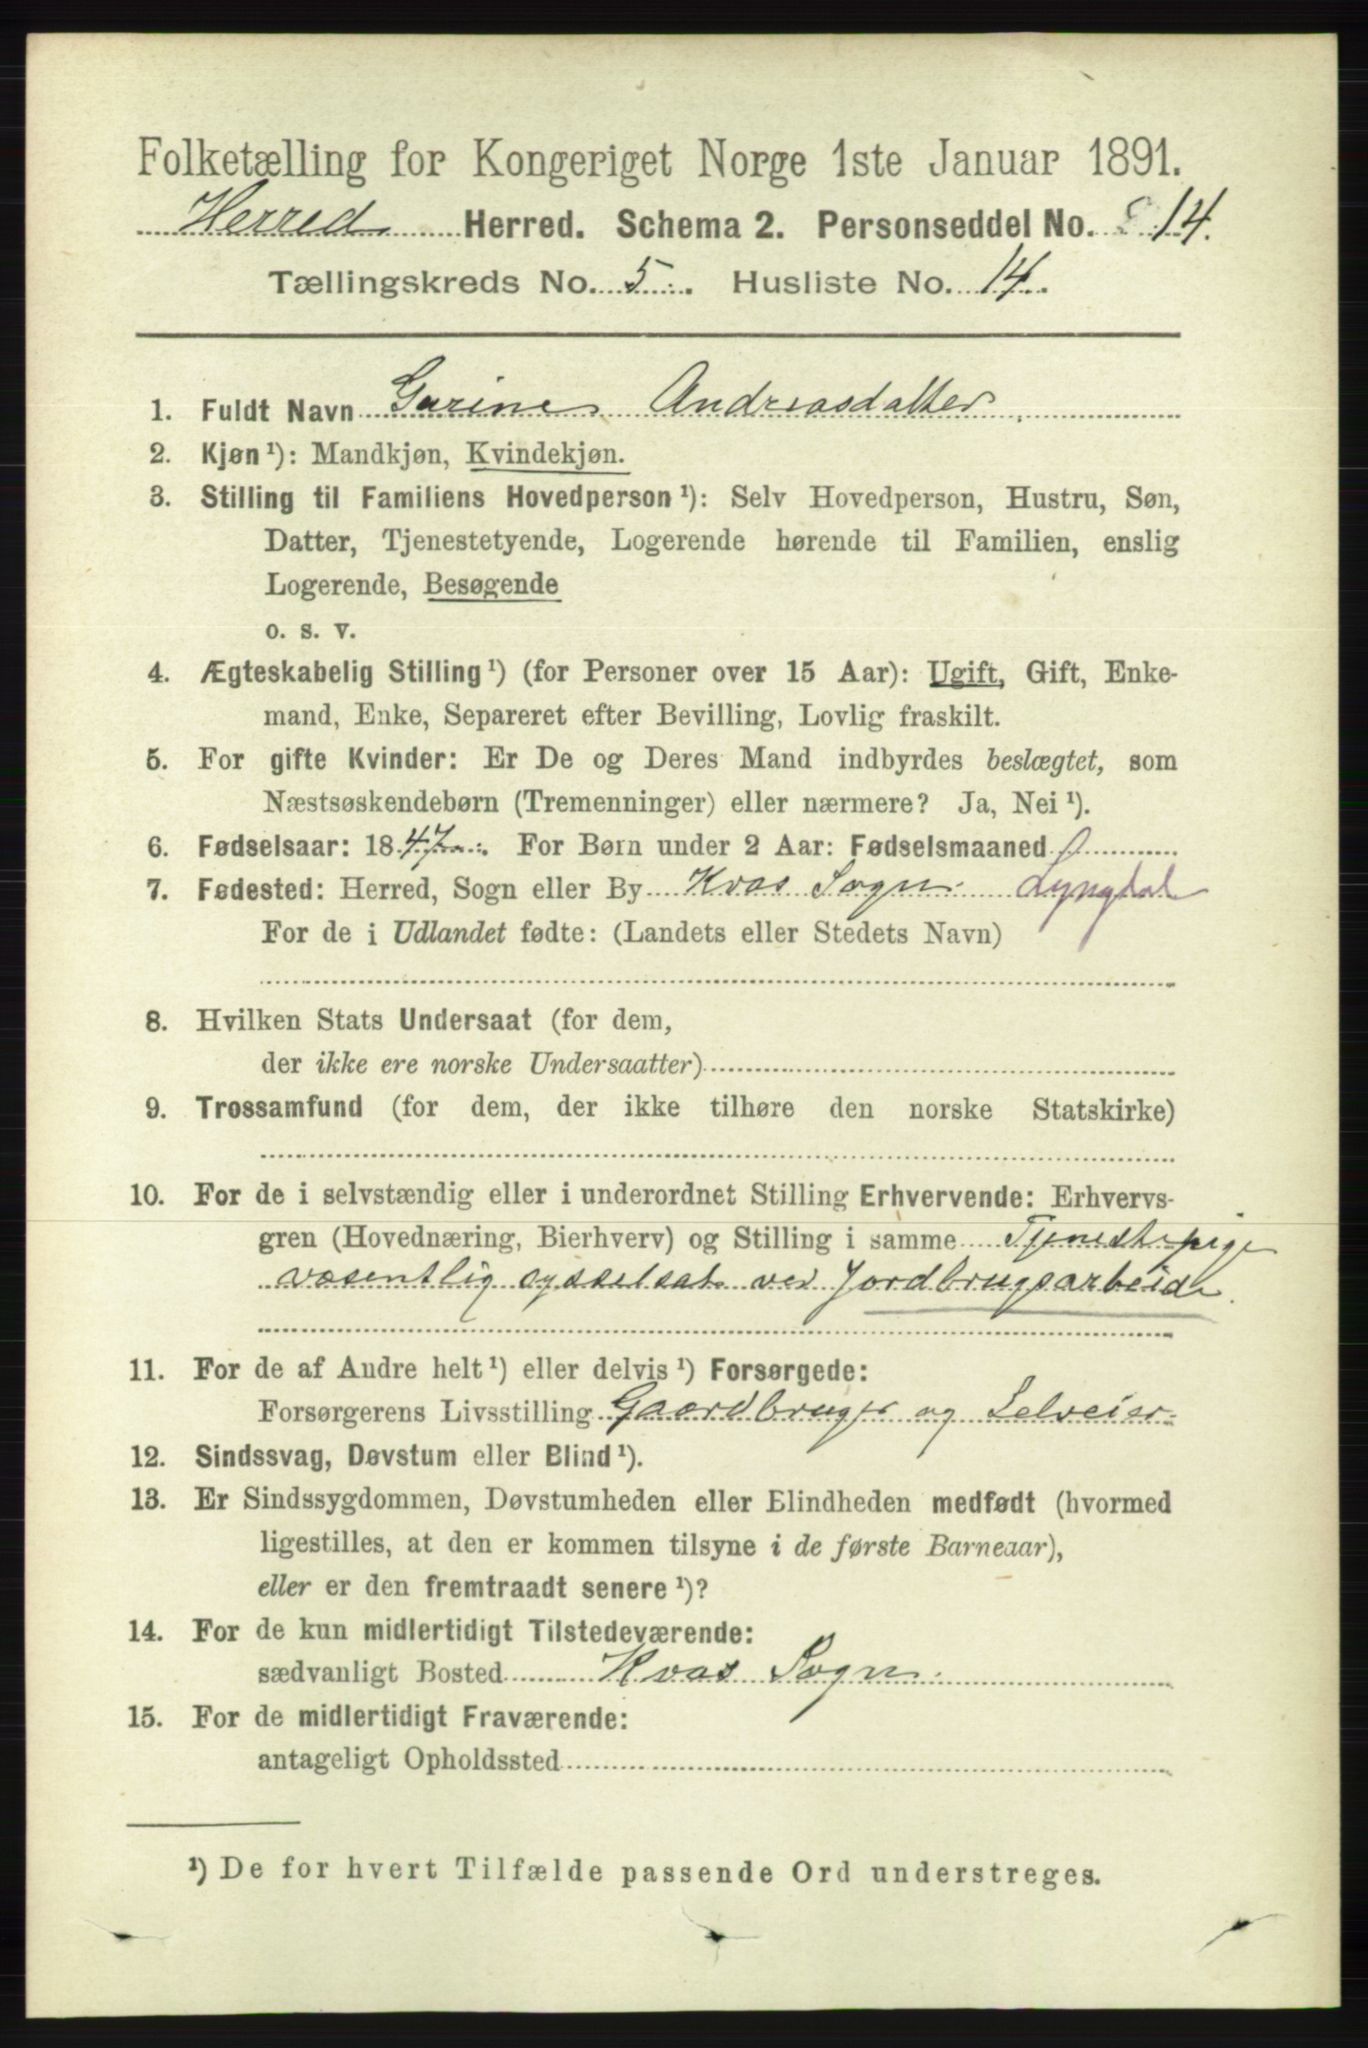 Folketælling for Kongeriget Norge 1ste Januar 1891.
Herred Herred. Schema 2. Personseddel No. 14.
Tællingskreds No. 5. Husliste No. 14.
1. Fuldt Navn Gurine Andreasdatter
2. Kjøn¹): Mandkjøn, Kvindekjøn.
3. Stilling til Familiens Hovedperson¹): Selv Hovedperson, Hustru, Søn,
Datter, Tjenestetyende, Logerende hørende til Familien, enslig
Logerende, Besøgende
o. s. v.
4. Ægteskabelig Stilling¹) (for Personer over 15 Aar): Ugift, Gift, Enke-
mand, Enke, Separeret efter Bevilling, Lovlig fraskilt.
5. For gifte Kvinder: Er De og Deres Mand indbyrdes beslægtet, som
Næstsøskendebørn (Tremenninger) eller nærmere? Ja, Nei¹).
6. Fødselsaar: 1847. For Børn under 2 Aar: Fødselsmaaned
7. Fødested: Herred, Sogn eller By Kvas Sogn. Lyngdal
For de i Udlandet fødte: (Landets eller Stedets Navn)
8. Hvilken Stats Undersaat (for dem,
der ikke ere norske Undersaatter)
9. Trossamfund (for dem, der ikke tilhøre den norske Statskirke)
10. For de i selvstændig eller i underordnet Stilling Erhvervende: Erhvervs-
gren (Hovednæring, Bierhverv) og Stilling i samme Tjenestepige
væsentlig sysselsat ved Jordbrugsarbeide.
11. For de af Andre helt¹) eller delvis¹) Forsørgede:
Forsørgerens Livsstilling Gaardbruger og Selveier
12. Sindssvag, Døvstum eller Blind¹).
13. Er Sindssygdommen, Døvstumheden eller Blindheden medfødt (hvormed
ligestilles, at den er kommen tilsyne i de første Barneaar),
eller er den fremtraadt senere¹)?
14. For de kun midlertidigt Tilstedeværende:
sædvanligt Bosted Kvas Sogn.
15. For de midlertidigt Fraværende:
antageligt Opholdssted
¹) De for hvert Tilfælde passende Ord understreges.